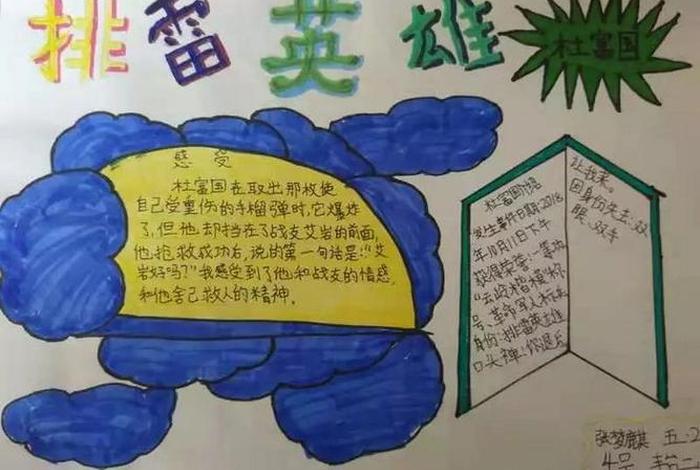 排雷英雄
杜富国
感受
杜富国在取出那枚使
自己受重伤的手榴弹时，它爆炸
了，但他却挡在了战支艾岩的前面，
他抢救成功后，说的第一句话是：“艾
岩好吗？”我感受到了他和战支的情感，
和他舍己救人的精神。
杜富国
发生事件日期：2018
年10月11日下午
获得荣誉：一等功
号、革命军人
身份：排雷英雄
口头禅：你退后
让我来。
因身份失去：双
眼、双手
五.2
4号